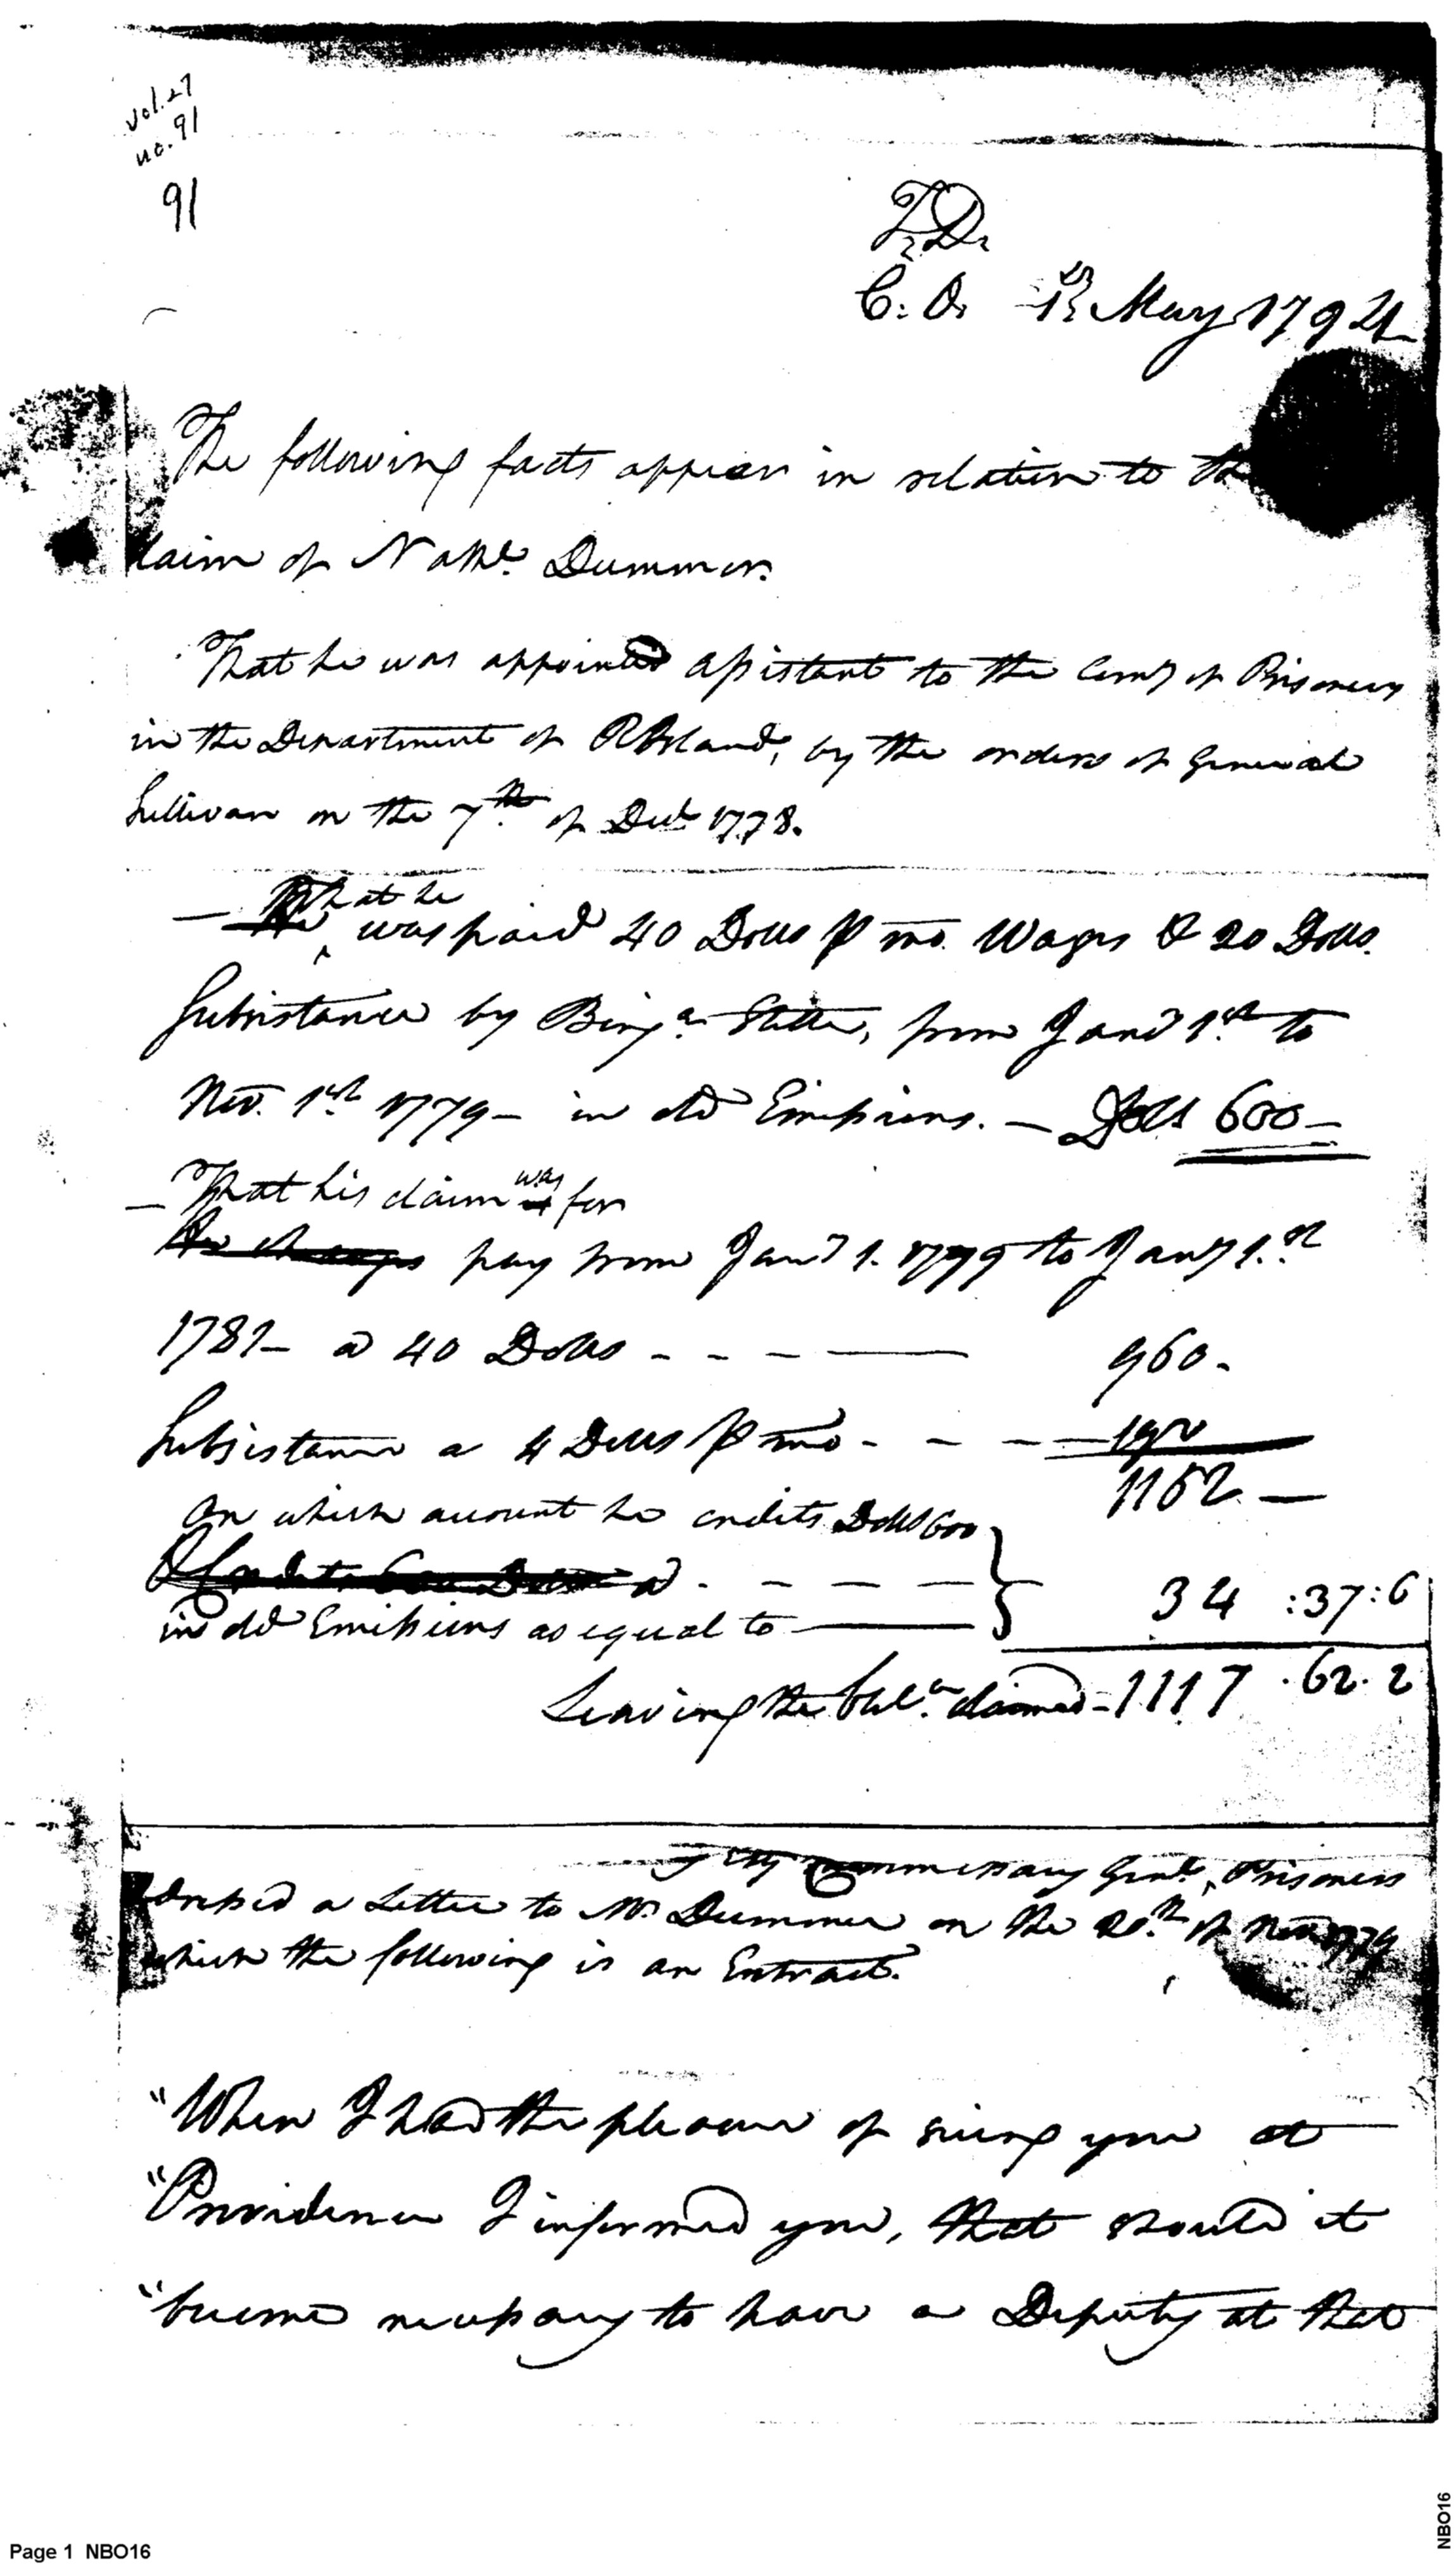 vol. 27
no. 91
91
T. D.
C. O. 13 May 1794
The following facts appear in relation to the
claim of Nathl. Dummer.
That he was appointed Assistant to the Comy of Prisoners
in the Department of R Island, by the orders of General
Sullivan on the 7th of Decr 1778.
— That he
was paid 40 Dolls P mo. Wages & 20 Dolls.
Subsistance by Benjn. Stelle, from Jany 1st to
Nov. 1st 1779 — in old Emissions. — Dolls 600 —
— That his claim was for
He charges pay from Jany 1. 1779 to Jany 1.st
1781 — a 40 Dolls - - - — 960.
Subsistance a 4 Dolls P mo - - - — 192
1152. —
On which account he credits Dolls 600
& Credits 600 Dolls
in old Emissions as equal to — 34 :37:6
Leaving the bale. claimed — 1117 .62.2
Commissary Genl. Prisoners
dressed a Letter to Mr. Dummer on the 20th of Nov 1779
which the following is an Extract.
"When I had the pleasure of seeing you at
"Providence I informed you, that should it
"become necessary to have a Deputy at that
Page 1 NBO16
NBO16